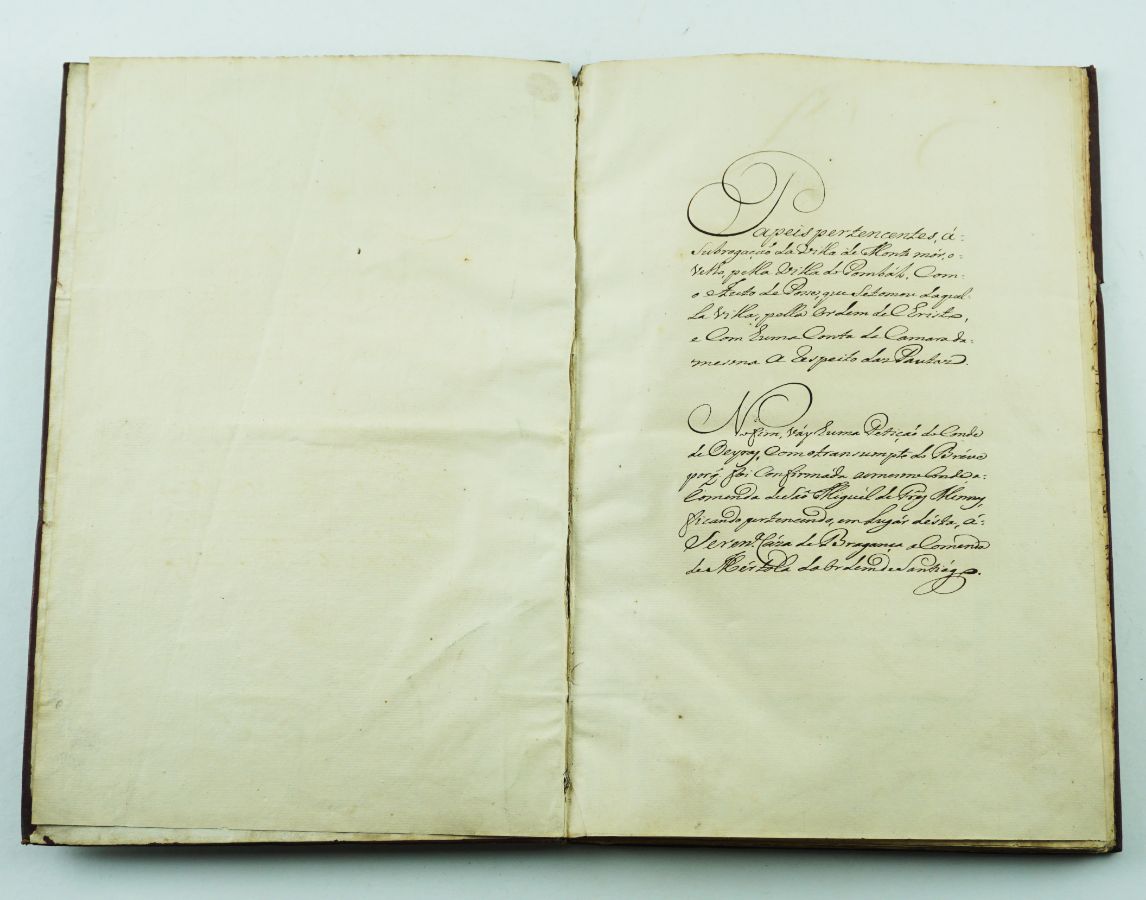 Papeis pertencentes, á-
Subrogação da Villa de Monte mór, o-
Velho, pella Villa de Pombál. Com-
o Auto de Posse, que Setomou daquel-
la Villa, pella Ordem de Christo,
e Com huma Conta da Camara da-
mesma a Respeito das Pautas.
No fim, váy huma Petição do Conde
de Oeyras, Com o transumpto do Bréve
porq̃ foi Confirmada aomesmo Conde a-
Comenda de São Miguél de Tres Minas,
ficando pertencendo, em Lugár désta, á-
Seren.ª Cáza de Bragança a Comenda
de Mértola da Ordem de Santiágo.